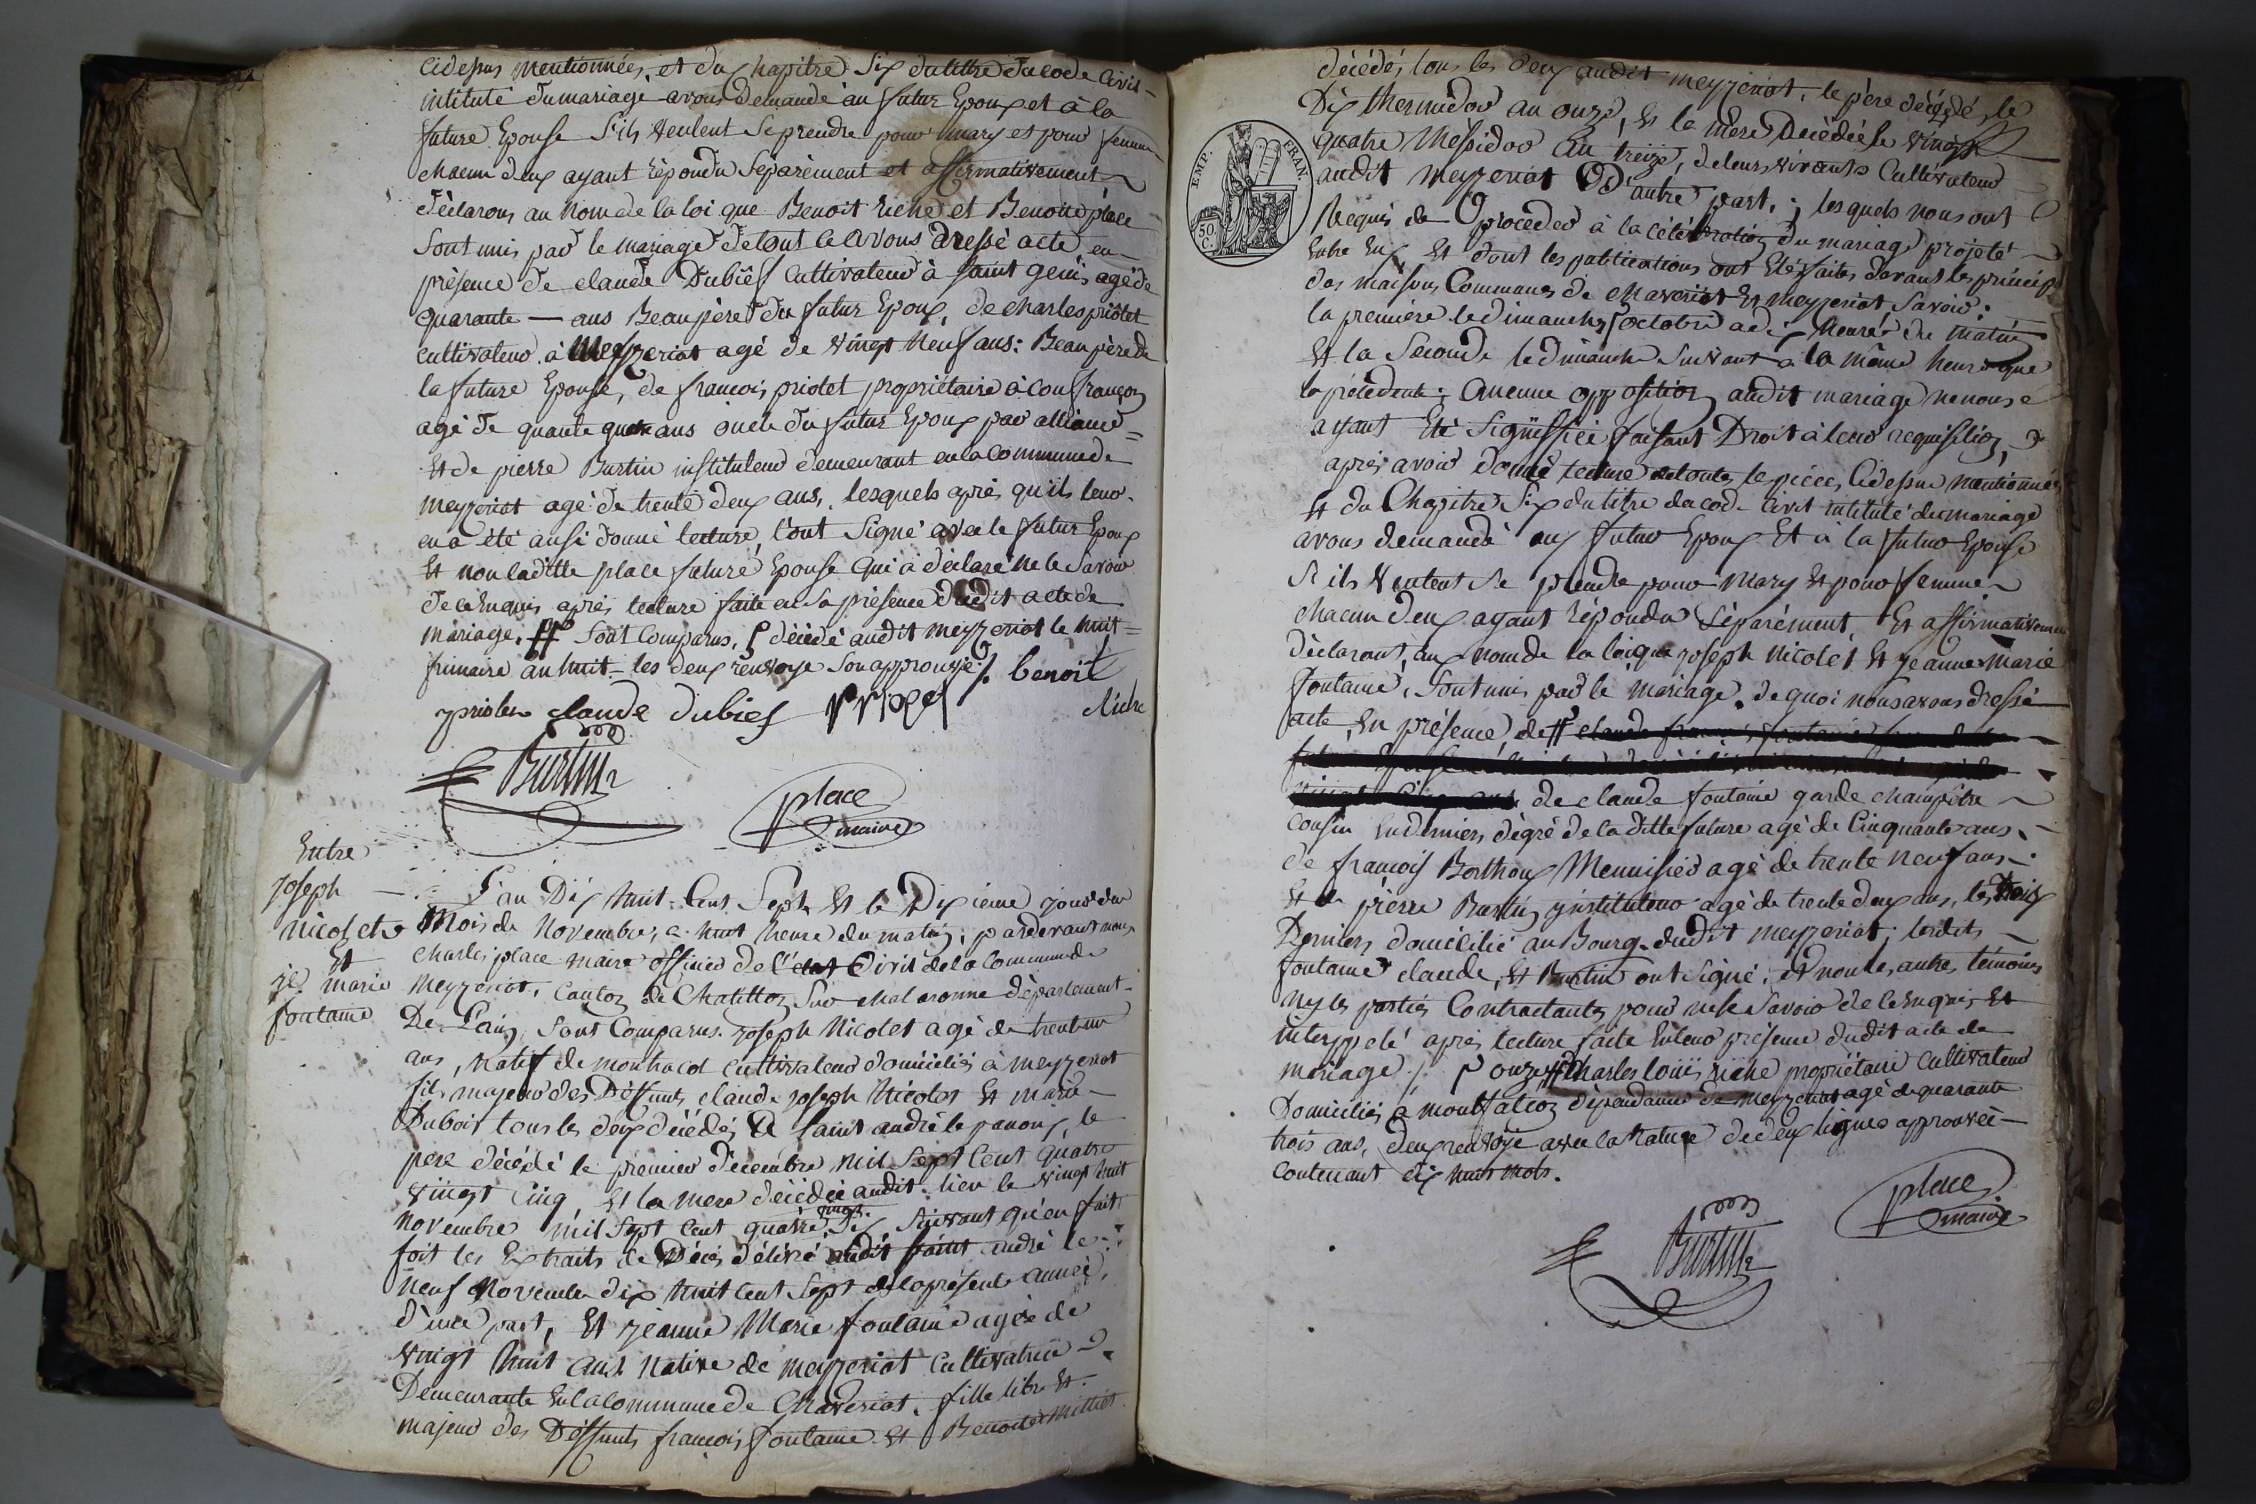 cidessus mentionnées, et du Chapitre Six du titre du code Civil
intitulé du mariage avons demandé au futur Epoux et à la
future Epouse S'ils veulent Se prendre pour mary et pour femme
chacun deux ayant répondu Séparément et affirmativement
déclarons au Nom de la loi que Benoit riche et Benoite place
Sont unis par le mariage de tout ce avons dressé acte en
présence de claude Dubief cultivateur à Saint genis agé de
quarante — ans Beaupère du futur Epoux, de charles priolet
cultivateur à Meyzeriat agé de vingt Neuf ans : Beaupère de
la future Epouse, de francois priolet propriétaire à confrançon
agé de quarante quatre ans oncle du futur Epoux par alliance =
Et de pierre Burtin instituteur demeurant en la commune de
meyzeriat agé de trente deux ans, lesquels après qu'ils leur
en a été ausi donné lecture, l'ont Signé avec le futur Epoux
Et non laditte place future Epouse qui a déclaré ne le Savoir
de ce Enquis après lecture faite en Sa présence dudit acte de
mariage. Sont Comparus, décédé audit meyzeriat le huit =
frimaire an huit les deux renvoye Son approuvé /. benoit
priolet claude dubief riche
Burtin
place
maire
Entre
Joseph
Nicolet
Et
je. marie
fontaine
L'an Dix huit Cent Sept Et le Dixieme jour du
Mois de Novembre, a huit heure du matin, pardevant nous
Charles place maire officier de l'etat Civil de la Commune de
Meyzeriat, Canton de Chatillon Sur chalaronne département
De L'ain, Sont Comparus. joseph Nicolet agé de trente un
ans, Natif de montracol cultivateur domiciliés à meyzeriat
fils majeur des Déffunts claude joseph Nicolet Et marie
Dubois tous les deux décédés A Saint andré le panoux, le
pere décédé le premier décembre mil Sept Cent quatre
vingt Cinq Et la mere décédée audit lieu le vingt huit
Novembre mil Sept Cent quatre vingt Dix, Suivant qu'en fait
foit les Extraits de Décès délivré audit Saint andré le
Neuf Novembre dix huit Cent Sept de la présente année,
d'une part, Et jeanne Marie fontaine agée de
vingt huit ans Native de meyzeriat Cultivatrice
Demeurante En la Commune de Chaveriat, fille libre Et
majeur des Déffunts francois fontaine Et Benoite Milliet
décédés tous les deux audit meyzeriat, le père décédé, le
Dix thermidor an onze, Et la mere Décédée le vingt
quatre Messidor an treize, de leurs vivants Cultivateur
audit meyzeriat D'autre part, ; lesquels nous ont
Requis de Proceder à la célébration du mariage projeté
Entre Eux, Et dont les publications ont Eté faites devant les princip
des maisons Communes de chaveriat Et meyzeriat, Savoir :
la première le dimanche octobre a dix heures du matin
Et la Seconde le dimanche Suivant à la même heure que
la précédente ; aucune opposition audit mariage ne nous
ayant Eté Signiffiée faisant Droit à leur requisition,
après avoir donné lecture de toutes le pieces Cidessus mentionnées
Et du Chapitre Six du titre du code Civil intitulé du mariage
avons demandé aux futur Epoux Et à la futur Epouse
S'ils veulent Se prendre pour Mary Et pour femme
chacun deux ayant répondu Séparément Et affirmativement
déclarant, au nom de la loi que joseph Nicolet Et jeanne Marie
fontaine, Sont unis par le mariage. de quoi nous avons dressé
acte, En présence de
de claude fontaine garde champêtre
cousin En dernier dégré de la ditte future agé de Cinquante ans,
de françois Berthoux Menuisier agé de trente Neuf ans
Et de pierre Burtin instituteur agé de trente deux ans, les trois
Derniers domicilié au Bourg dudit meyzeriat ; lesdits
fontaine claude, Et Burtin ont Signé, Et non les autres témoins
Ny les parties Contractantes pour ne le Savoir de ce Enquis Et
interppelé après lecture faite En leur présence dudit acte de
mariage /. onze charles louis riche propriétaire cultivateur
Domiciliés à montfalcon dépendance de meyzeriat agé de quarante
trois ans, deux renvoye avec la Rature de deux lignes approuvée
Contenant dix huit mots.
Burtin
place
maire
EMP. FRAN.
50.
C.